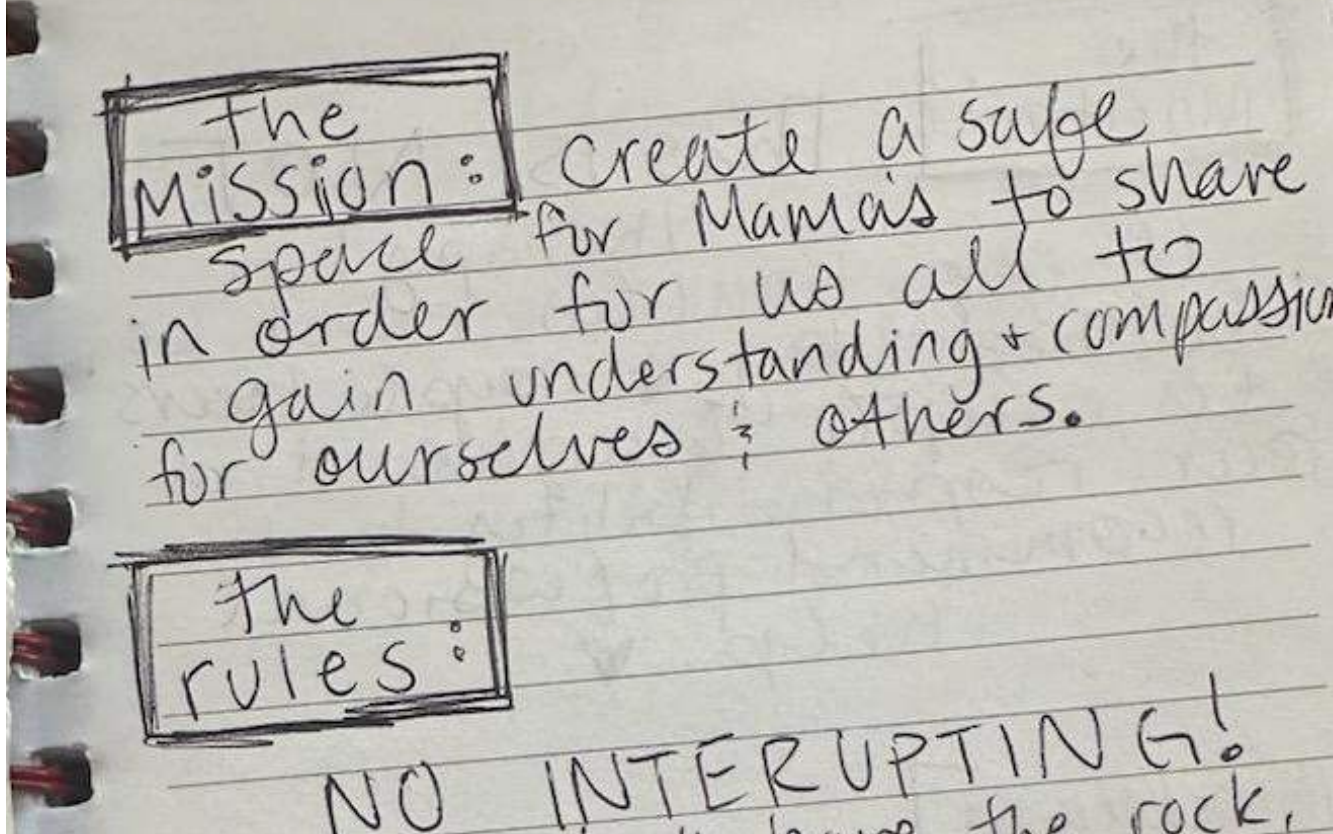 the
Mission: create a safe
space for Mama's to share
in order for us all to
gain understanding + compassion
for ourselves & others.
the
rules:
NO INTERUPTING!
have the rock,